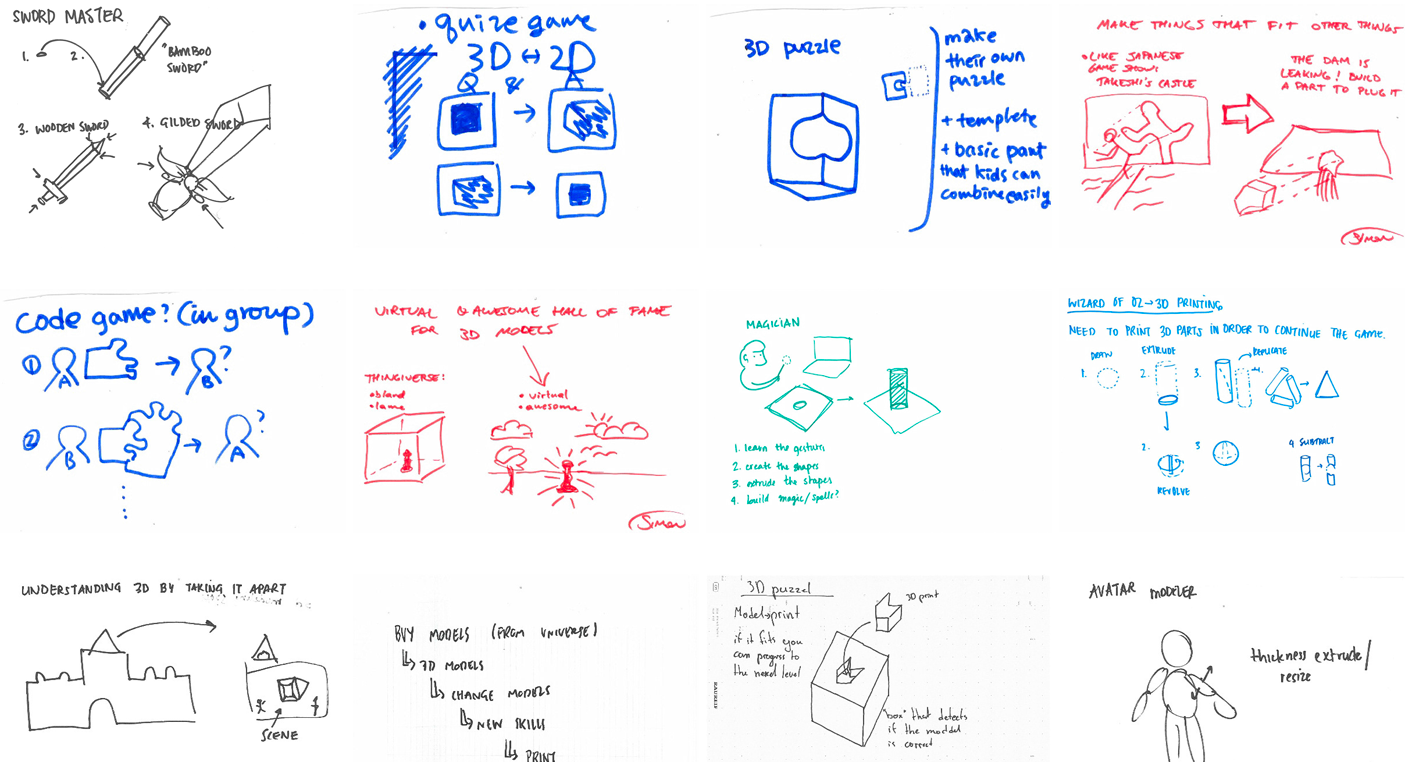 SWORD MASTER
1.
2.
"BAMBOO
SWORD"
3. WOODEN SWORD
4. GILDED SWORD
• quize game
3D ↔ 2D
Q & A
3D puzzle
make
their own
puzzle
+ templete
+ basic part
that kids can
combine easily
MAKE THINGS THAT FIT OTHER THINGS
• LIKE JAPANESE
GAME SHOW:
TAKESHI'S CASTLE
THE DAM IS
LEAKING! BUILD
A PART TO PLUG IT
Simon
Code game? (in group)
① A → B?
② B → A?
VIRTUAL & AWESOME HALL OF FAME
FOR 3D MODELS
THINGIVERSE:
• bland
• lame
• virtual
• awesome
Simon
MAGICIAN
1. learn the gesture
2. create the shapes
3. extrude the shapes
4. build magic/spells?
WIZARD OF OZ → 3D PRINTING
NEED TO PRINT 3D PARTS IN ORDER TO CONTINUE THE GAME.
1. DRAW
2. EXTRUDE
3. REPLICATE
2.
REVOLVE
3
4 SUBTRACT
UNDERSTANDING 3D BY TAKING IT APART
SCENE
BUY MODELS (FROM UNIVERSE)
3D MODELS
CHANGE MODELS
NEW SKILLS
PRINT
3D puzzel
Model→print
if it fits you
can progress to
the next level
3D print
"box" that detects
if the model
is correct
AVATAR MODELER
thickness extrude/
resize